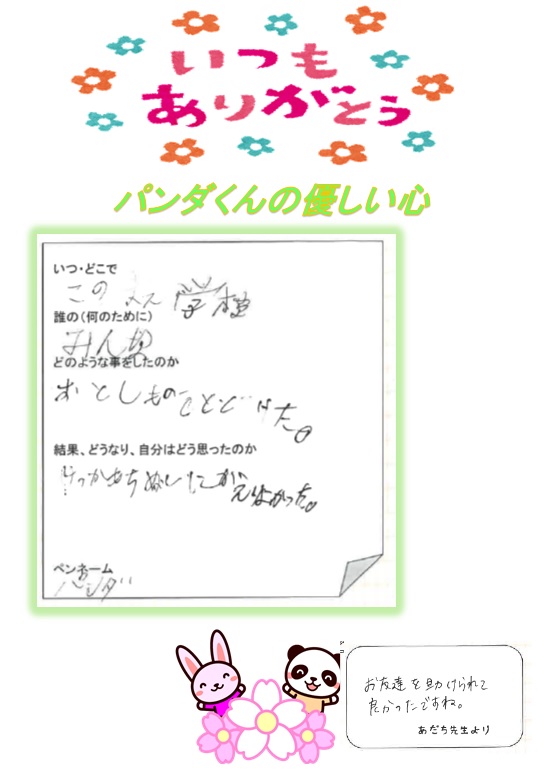 いつも
ありがとう
パンダくんの優しい心
いつ・どこで
この 学校
誰の(何のために)
みんな
どのような事をしたのか
おとしものをとどけた。
結果、どうなり、自分はどう思ったのか
けっかもちぬしにかえしよかった。
ペンネーム
パンダ
お友達を助けられて
良かったですね。
あだち先生より